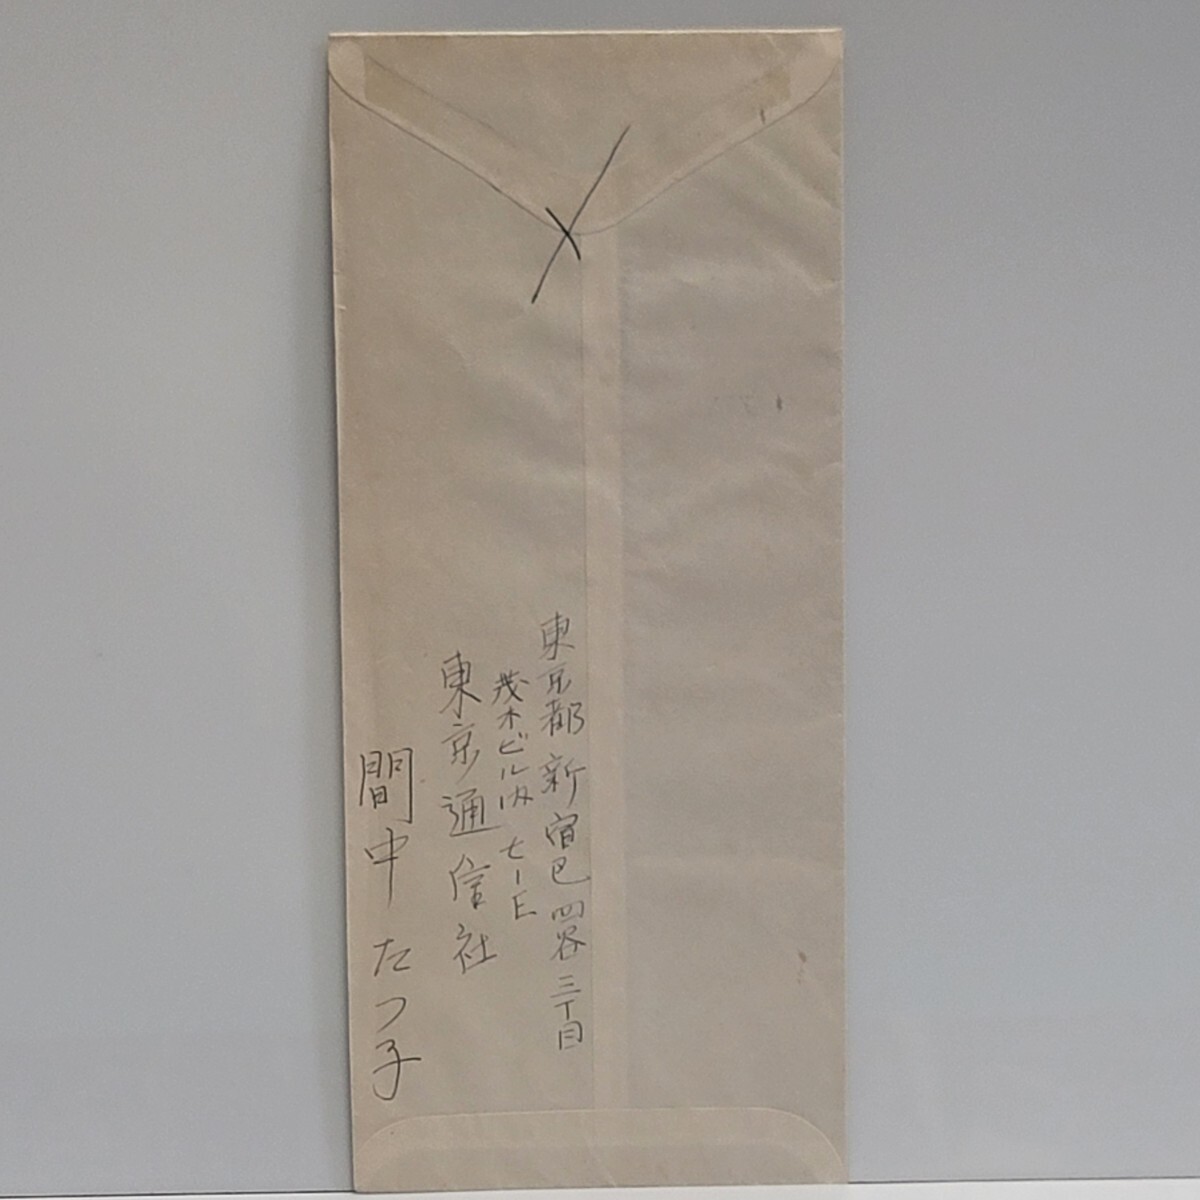 東京都新宿区四谷三丁目
茂木ビル内 七ーE
東京通信社
間中たつ子